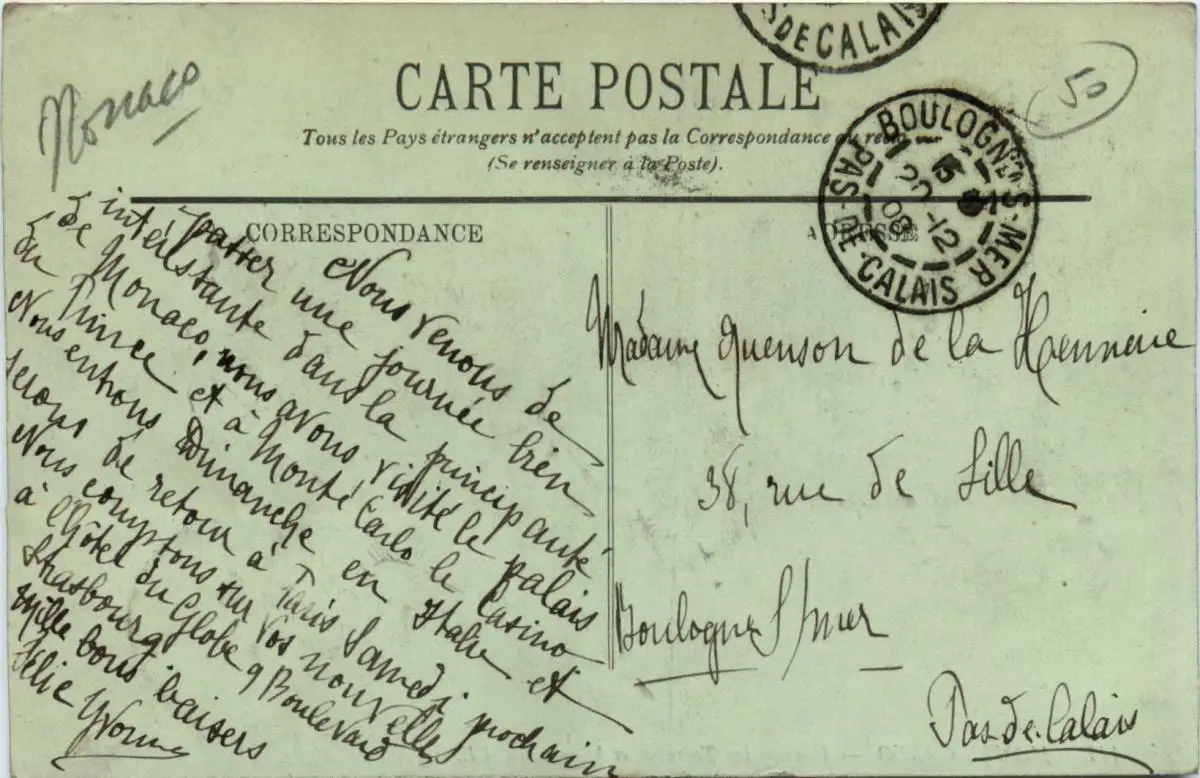 S DE CALAIS
Monaco
50
CARTE POSTALE
Tous les Pays étrangers n'acceptent pas la Correspondance au recto
(Se renseigner à la Poste).
BOULOGNE S-MER
PAS-DE-CALAIS
20-12
08
CORRESPONDANCE
ADRESSE
Nous venons de
passer une journée bien
intéréstante dans la principauté
de Monaco, nous avons visité le palais
du Prince et à Monté Carlo le Casino
Nous entrons Dimanche en Italie et
serons de retour à Paris Samedi prochain
Nous comptons sur vos nouvelles
à l'Hôtel du Globe 9 Boulevard
Strasbourg
Mille bons baisers
Félic Yvonne
Madame Quenson de la Hennerie
38, rue de Lille
Boulogne S/mer
Pas-de-Calais